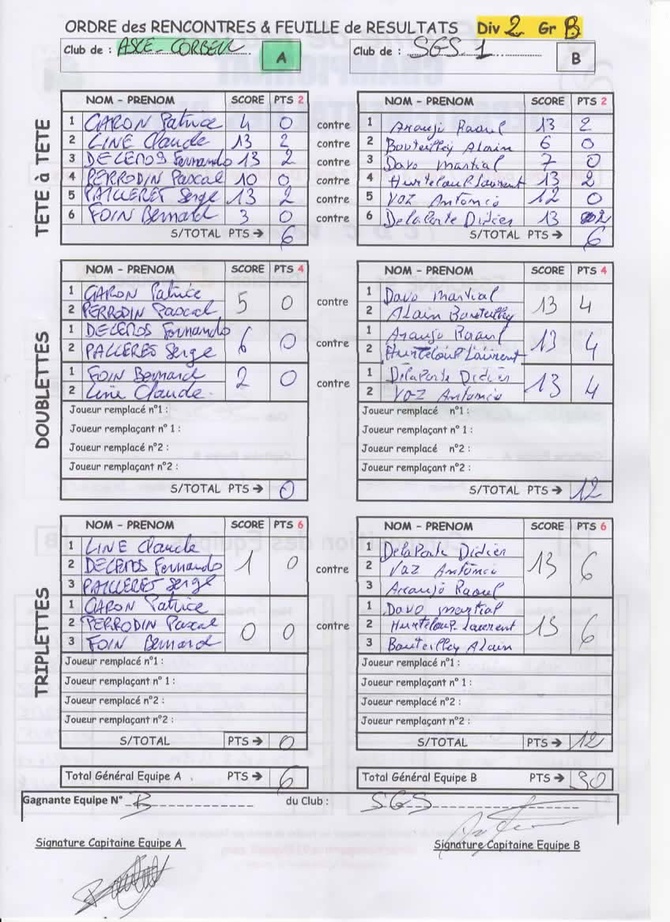 ORDRE des RENCONTRES & FEUILLE de RESULTATS Div 2 Gr B
Club de : ASCE_CORBEIL A Club de : SGS_1 B
TETE à TETE
NOM - PRENOM SCORE PTS 2 NOM - PRENOM SCORE PTS 2
1 CARON Patrice 4 0 contre 1 Araujo Raoul 13 2
2 LINE Claude 13 2 contre 2 Bouteilley Alain 6 0
3 DE LEMOS Fernando 13 2 contre 3 Davo martial 7 0
4 PERRODIN Pascal 10 0 contre 4 Hurteloup laurent 13 2
5 PAILLERET Serge 13 2 contre 5 VAZ Antonio 12 0
6 FOIN Bernard 3 0 contre 6 Delaporte Didier 13 2
S/TOTAL PTS → 6 S/TOTAL PTS → 6
DOUBLETTES
NOM - PRENOM SCORE PTS 4 NOM - PRENOM SCORE PTS 4
1 CARON Patrice 5 0 contre 1 Davo martial 13 4
2 PERRODIN Pascal 2 Alain Bouteilley
1 DE LEMOS Fernando 6 0 contre 1 Araujo Raoul 13 4
2 PAILLERET Serge 2 Hurteloup Laurent
1 FOIN Bernard 2 0 contre 1 Delaporte Didier 13 4
2 Line Claude. 2 VAZ Antonio
Joueur remplacé n°1 : Joueur remplacé n°1 :
Joueur remplaçant n° 1 : Joueur remplaçant n° 1 :
Joueur remplacé n°2 : Joueur remplacé n°2 :
Joueur remplaçant n°2 : Joueur remplaçant n°2 :
S/TOTAL PTS → 0 S/TOTAL PTS → 12
TRIPLETTES
NOM - PRENOM SCORE PTS 6 NOM - PRENOM SCORE PTS 6
1 LINE Claude 1 Delaporte Didier
2 DE LEMOS Fernando 1 0 contre 2 Vaz Antonio 13 6
3 PAILLERET Serge 3 Araujo Raoul
1 CARON Patrice 1 Davo martial
2 PERRODIN Pascal 0 0 contre 2 Hurteloup laurent 13 6
3 FOIN Bernard 3 Bouteilley Alain
Joueur remplacé n°1 : Joueur remplacé n°1 :
Joueur remplaçant n° 1 : Joueur remplaçant n° 1 :
Joueur remplacé n°2 : Joueur remplacé n°2 :
Joueur remplaçant n°2 : Joueur remplaçant n°2 :
S/TOTAL PTS → 0 S/TOTAL PTS → 12
Total Général Equipe A PTS → 6 Total Général Equipe B PTS → 30
Gagnante Equipe N° B du Club : SGS
Signature Capitaine Equipe A Signature Capitaine Equipe B